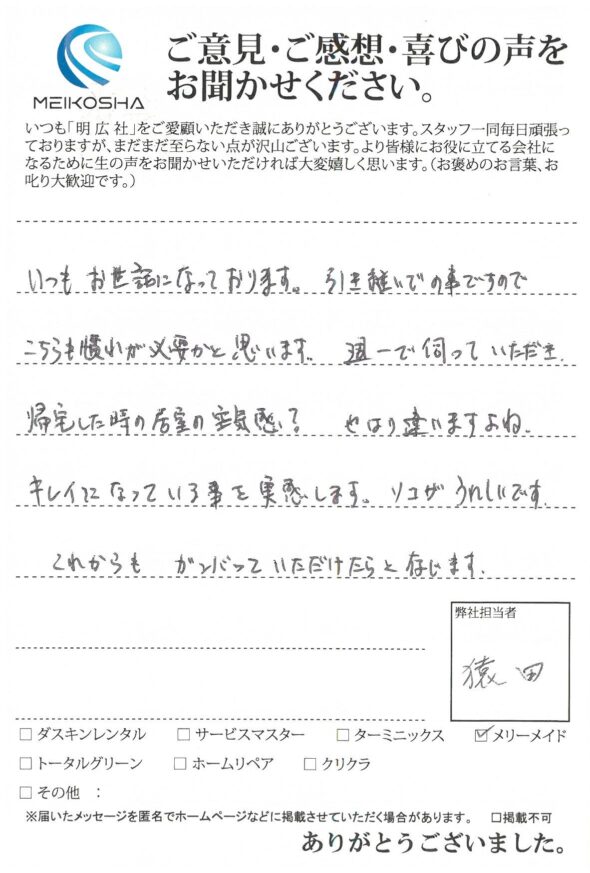 MEIKOSHA
ご意見・ご感想・喜びの声を
お聞かせください。
いつも「明広社」をご愛顧いただき誠にありがとうございます。スタッフ一同毎日頑張っ
ておりますが、まだまだ至らない点が沢山ございます。より皆様にお役に立てる会社に
なるために生の声をお聞かせいただければ大変嬉しく思います。（お褒めのお言葉、お
叱り大歓迎です。）
いつも お世話になっております。 引き継いでの事ですので
こちらも慣れが必要かと思います。 週一で伺っていただき、
帰宅した時の居室の空気感って やはり違いますよね。
キレイになっている事を実感します。 ソコがうれしいです。
これからも ガンバっていただけたらと存じます。
弊社担当者
猿田
□ ダスキンレンタル □ サービスマスター □ ターミニックス ☑ メリーメイド
□ トータルグリーン □ ホームリペア □ クリクラ
□ その他 ：
※届いたメッセージを匿名でホームページなどに掲載させていただく場合があります。 □掲載不可
ありがとうございました。